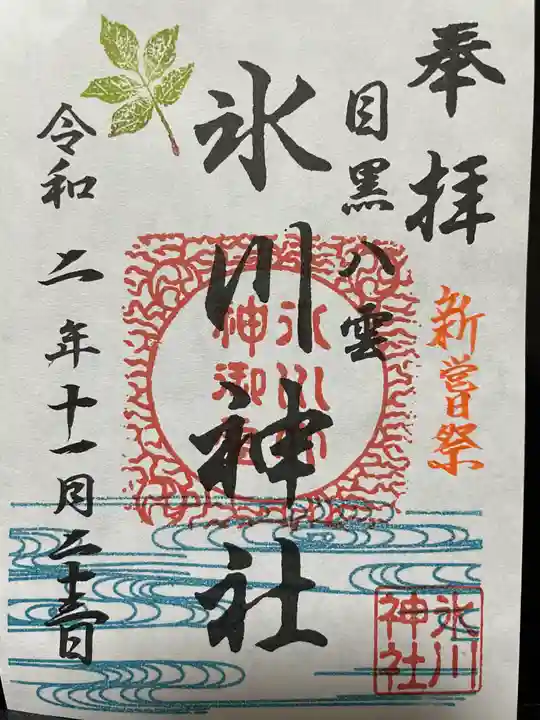 奉拝
新嘗祭
目黒八雲
氷川神社
令和二年十一月二十三日
氷川神社